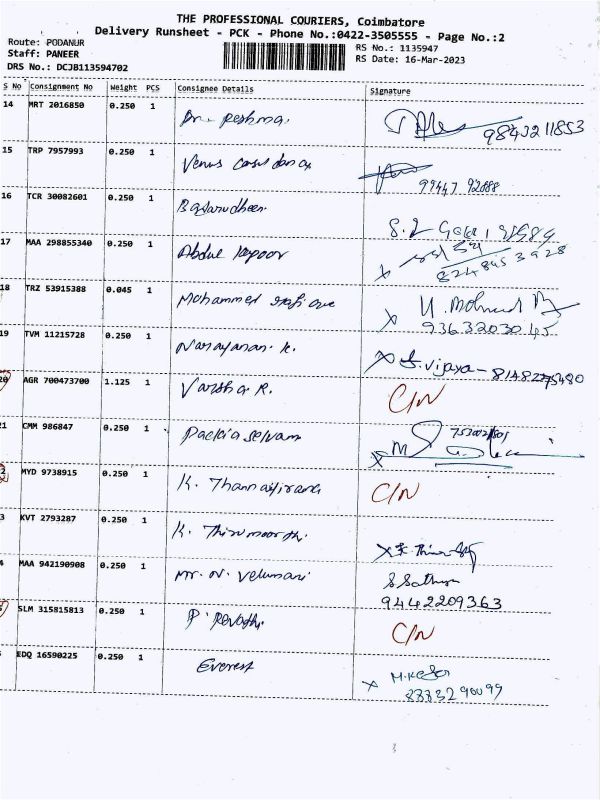 THE PROFESSIONAL COURIERS, Coimbatore
Delivery Runsheet - PCK - Phone No.:0422-3505555 - Page No.:2
Route: PODANUR
RS No.: 1135947
Staff: PANEER
RS Date: 16-Mar-2023
DRS No.: DCJB113594702
S No Consignment No Weight PCS Consignee Details Signature
14 MRT 2016850 0.250 1 Dr. Reshma. 9843211853
15 TRP 7957993 0.250 1 Venus 99447 92888
16 TCR 30082601 0.250 1 Badarudheen
17 MAA 298855340 0.250 1 Abdul Kapoor 8248453928
18 TRZ 53915388 0.045 1 Mohammed 9363203045
19 TVM 11215728 0.250 1 Narayanan. K. X S. Vijaya - 8148275480
20 AGR 700473700 1.125 1 Varsha R. C/N
21 CMM 986847 0.250 1 Packia selvam
2 MYD 9738915 0.250 1 K. C/N
3 KVT 2793287 0.250 1 K. Thirumoorthi
4 MAA 942190908 0.250 1 Mr. N. Velumani 9442209363
SLM 315815813 0.250 1 P. Revathi C/N
EDQ 16590225 0.250 1 Everest X 8883290099